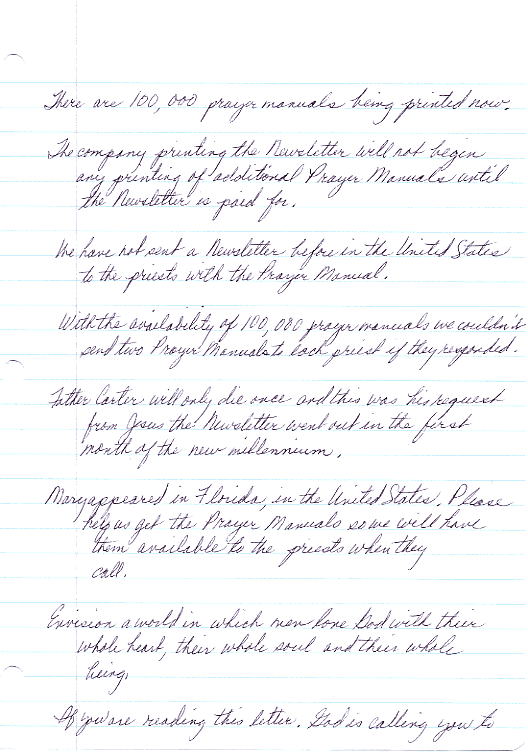 There are 100,000 prayer manuals being printed now.
The company printing the Newsletter will not begin
any printing of additional Prayer Manuals until
the Newsletter is paid for.
We have not sent a Newsletter before in the United States
to the priests with the Prayer Manual.
With the availability of 100,000 prayer manuals we couldn't
send two Prayer Manuals to each priest if they responded.
Father Carter will only die once and this was his request
from Jesus the Newsletter went out in the first
month of the new millennium.
Mary appeared in Florida, in the United States. Please
help us get the Prayer Manuals so we will have
them available to the priests when they
call.
Envision a world in which men love God with their
whole heart, their whole soul and their whole
being.
If you are reading this letter. God is calling you to